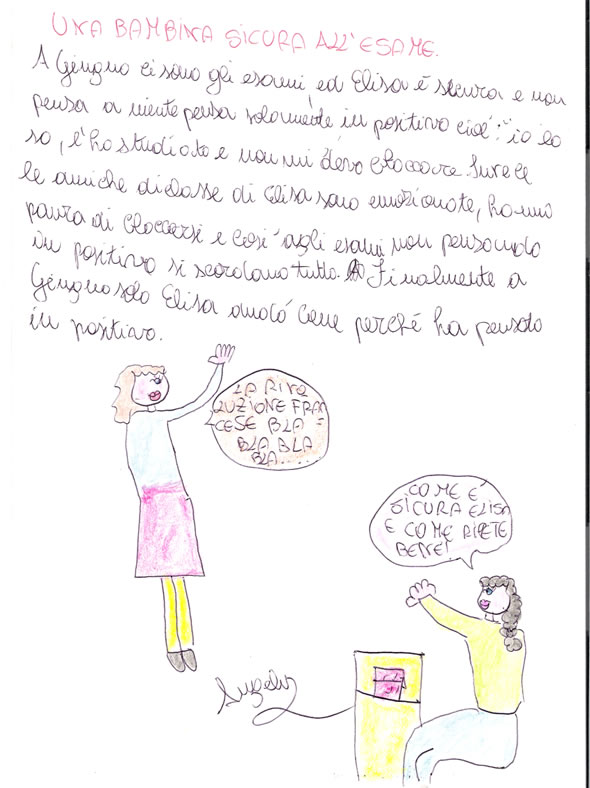 UNA BAMBINA SICURA ALL'ESAME.
A Giugno ci sono gli esami ed Elisa è sicura e non
pensa a niente pensa solamente in positivo cioé: "io lo
so, l'ho studiato e non mi devo bloccare. Invece
le amiche di classe di Elisa sono emozionate, hanno
paura di bloccarsi e così agli esami non pensando
in positivo si scordano tutto. Finalmente a
Giugno solo Elisa andò bene perché ha pensato
in positivo.
LA RIVO
LUZIONE FRAN
CESE BLA =
BLA BLA
BLA.....
COME E'
SICURA ELISA
E COME RIPETE
BENE!